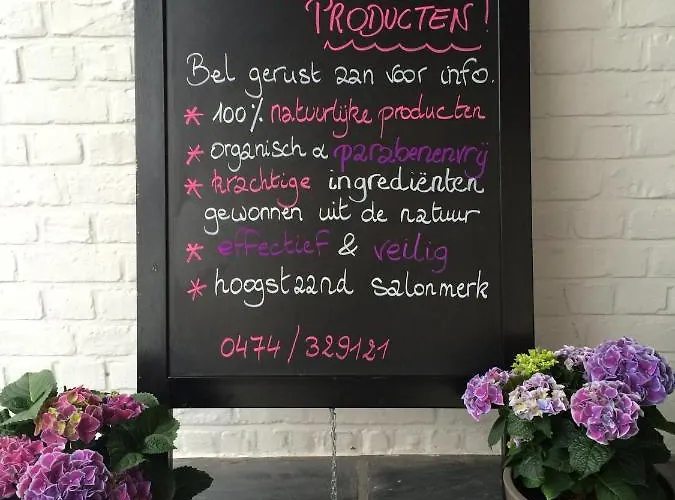 PRODUCTEN!
Bel gerust aan voor info.
* 100% natuurlijke producten
* organisch & parabenenvrij
* krachtige ingrediënten
gewonnen uit de natuur
* effectief & veilig
* hoogstaand salonmerk
0474/329121